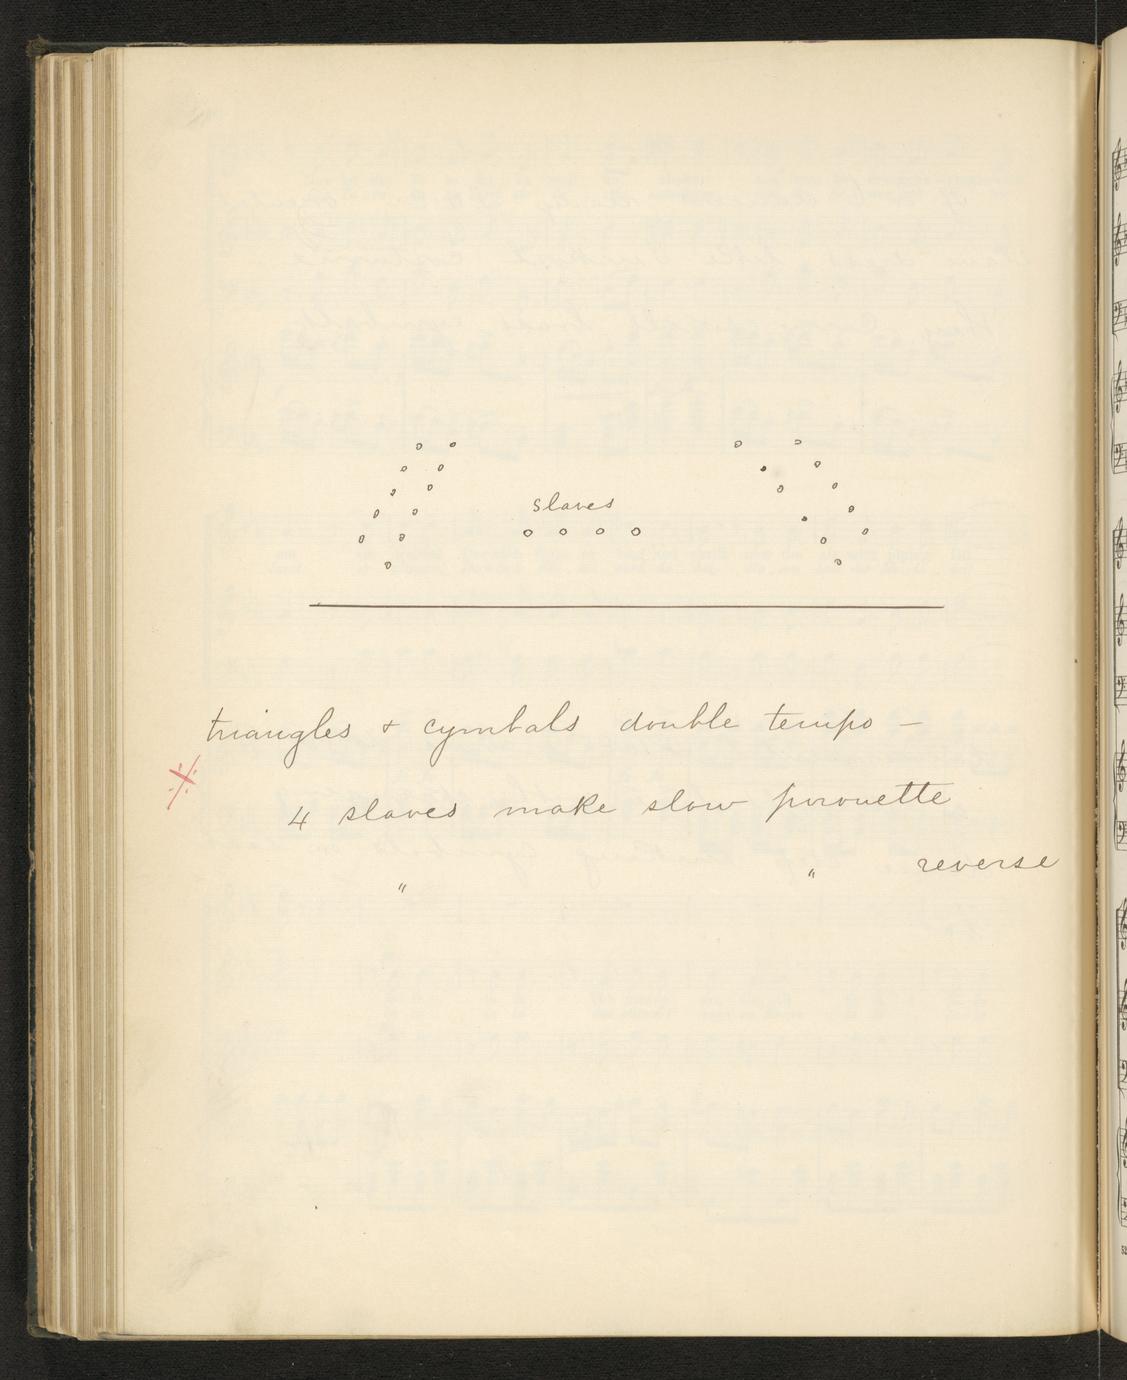 slaves
triangles & cymbals double tempo –
4 slaves make slow pirouette
" " reverse